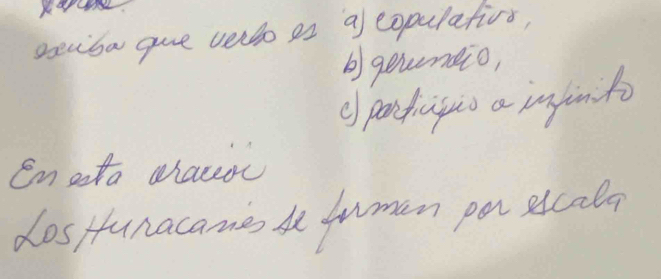 escriba que verbo es a) copulativo,
b) gerundio,
c) participio o infinito
En esta oracion
Los Huracanes se forman por escala